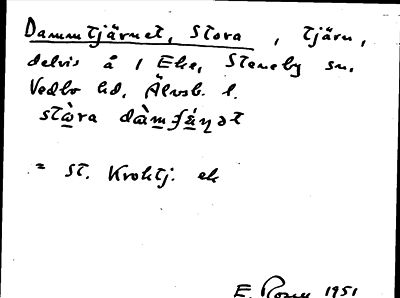 Dammtjärnet, Stora, tjärn,
delvis å 1 Eke, Steneby sn,
Vedbo hd, Älvsb. l.
stòra dàmʃæ̀ɳət
= St. Kroktj. ek
E. Rosen 1951